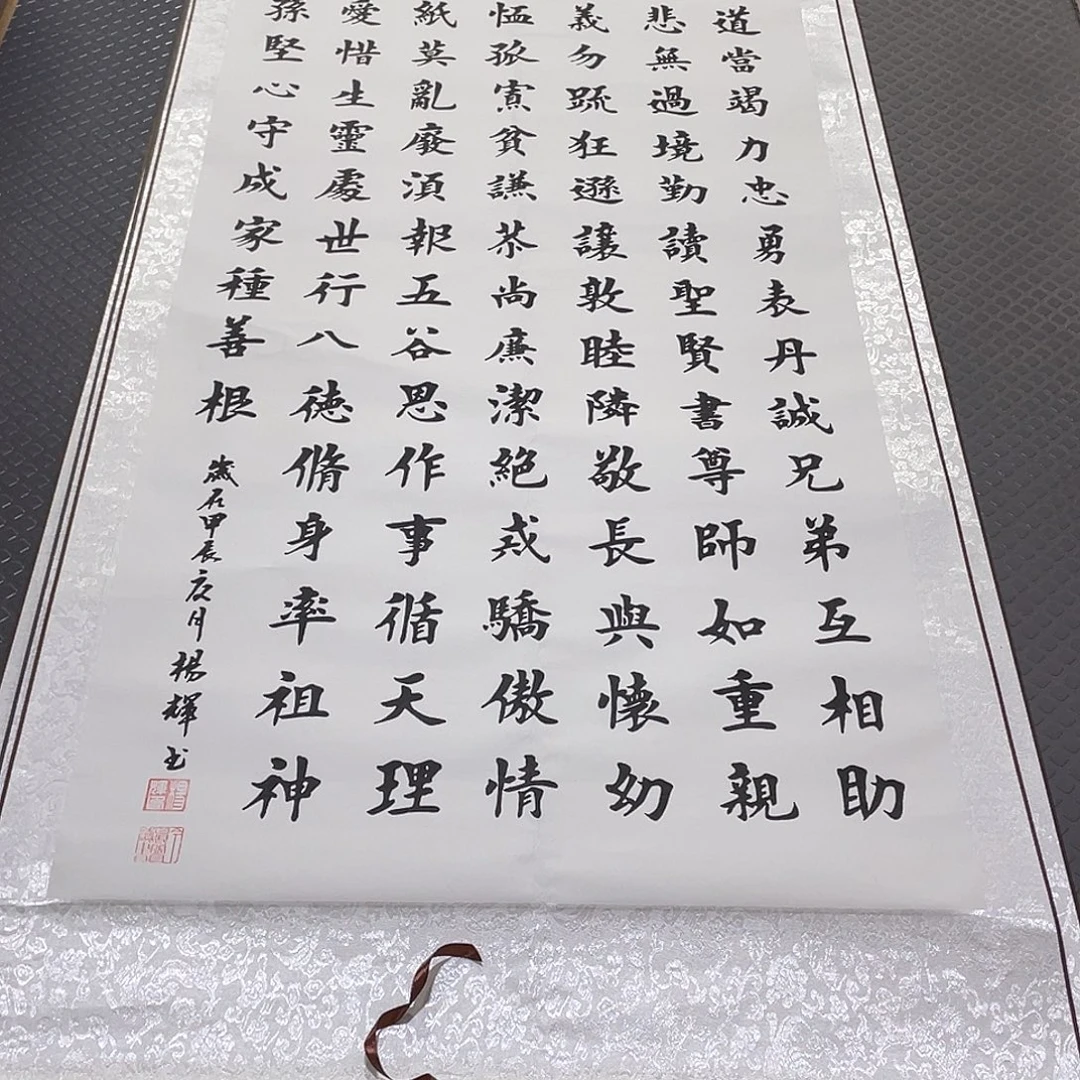 道當竭力忠勇表丹誠兄弟互相助
悲無過境勤讀聖賢書尊師如重親
義勿疏狂遜讓敦睦隣敬長與懷幼
恤孤寡貧謙恭尚廉潔絕戒驕傲情
紙莫亂廢須報五谷恩作事循天理
愛惜生靈處世行八德脩身率祖神
孫堅心守成家種善根
歲在甲辰夏月楊輝书